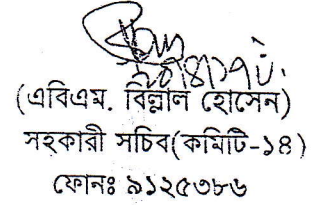 (এবিএম. বিল্লাল হোসেন)
সহকারী সচিব(কমিটি-১৪)
ফোনঃ ৯১২৫৩৮৬